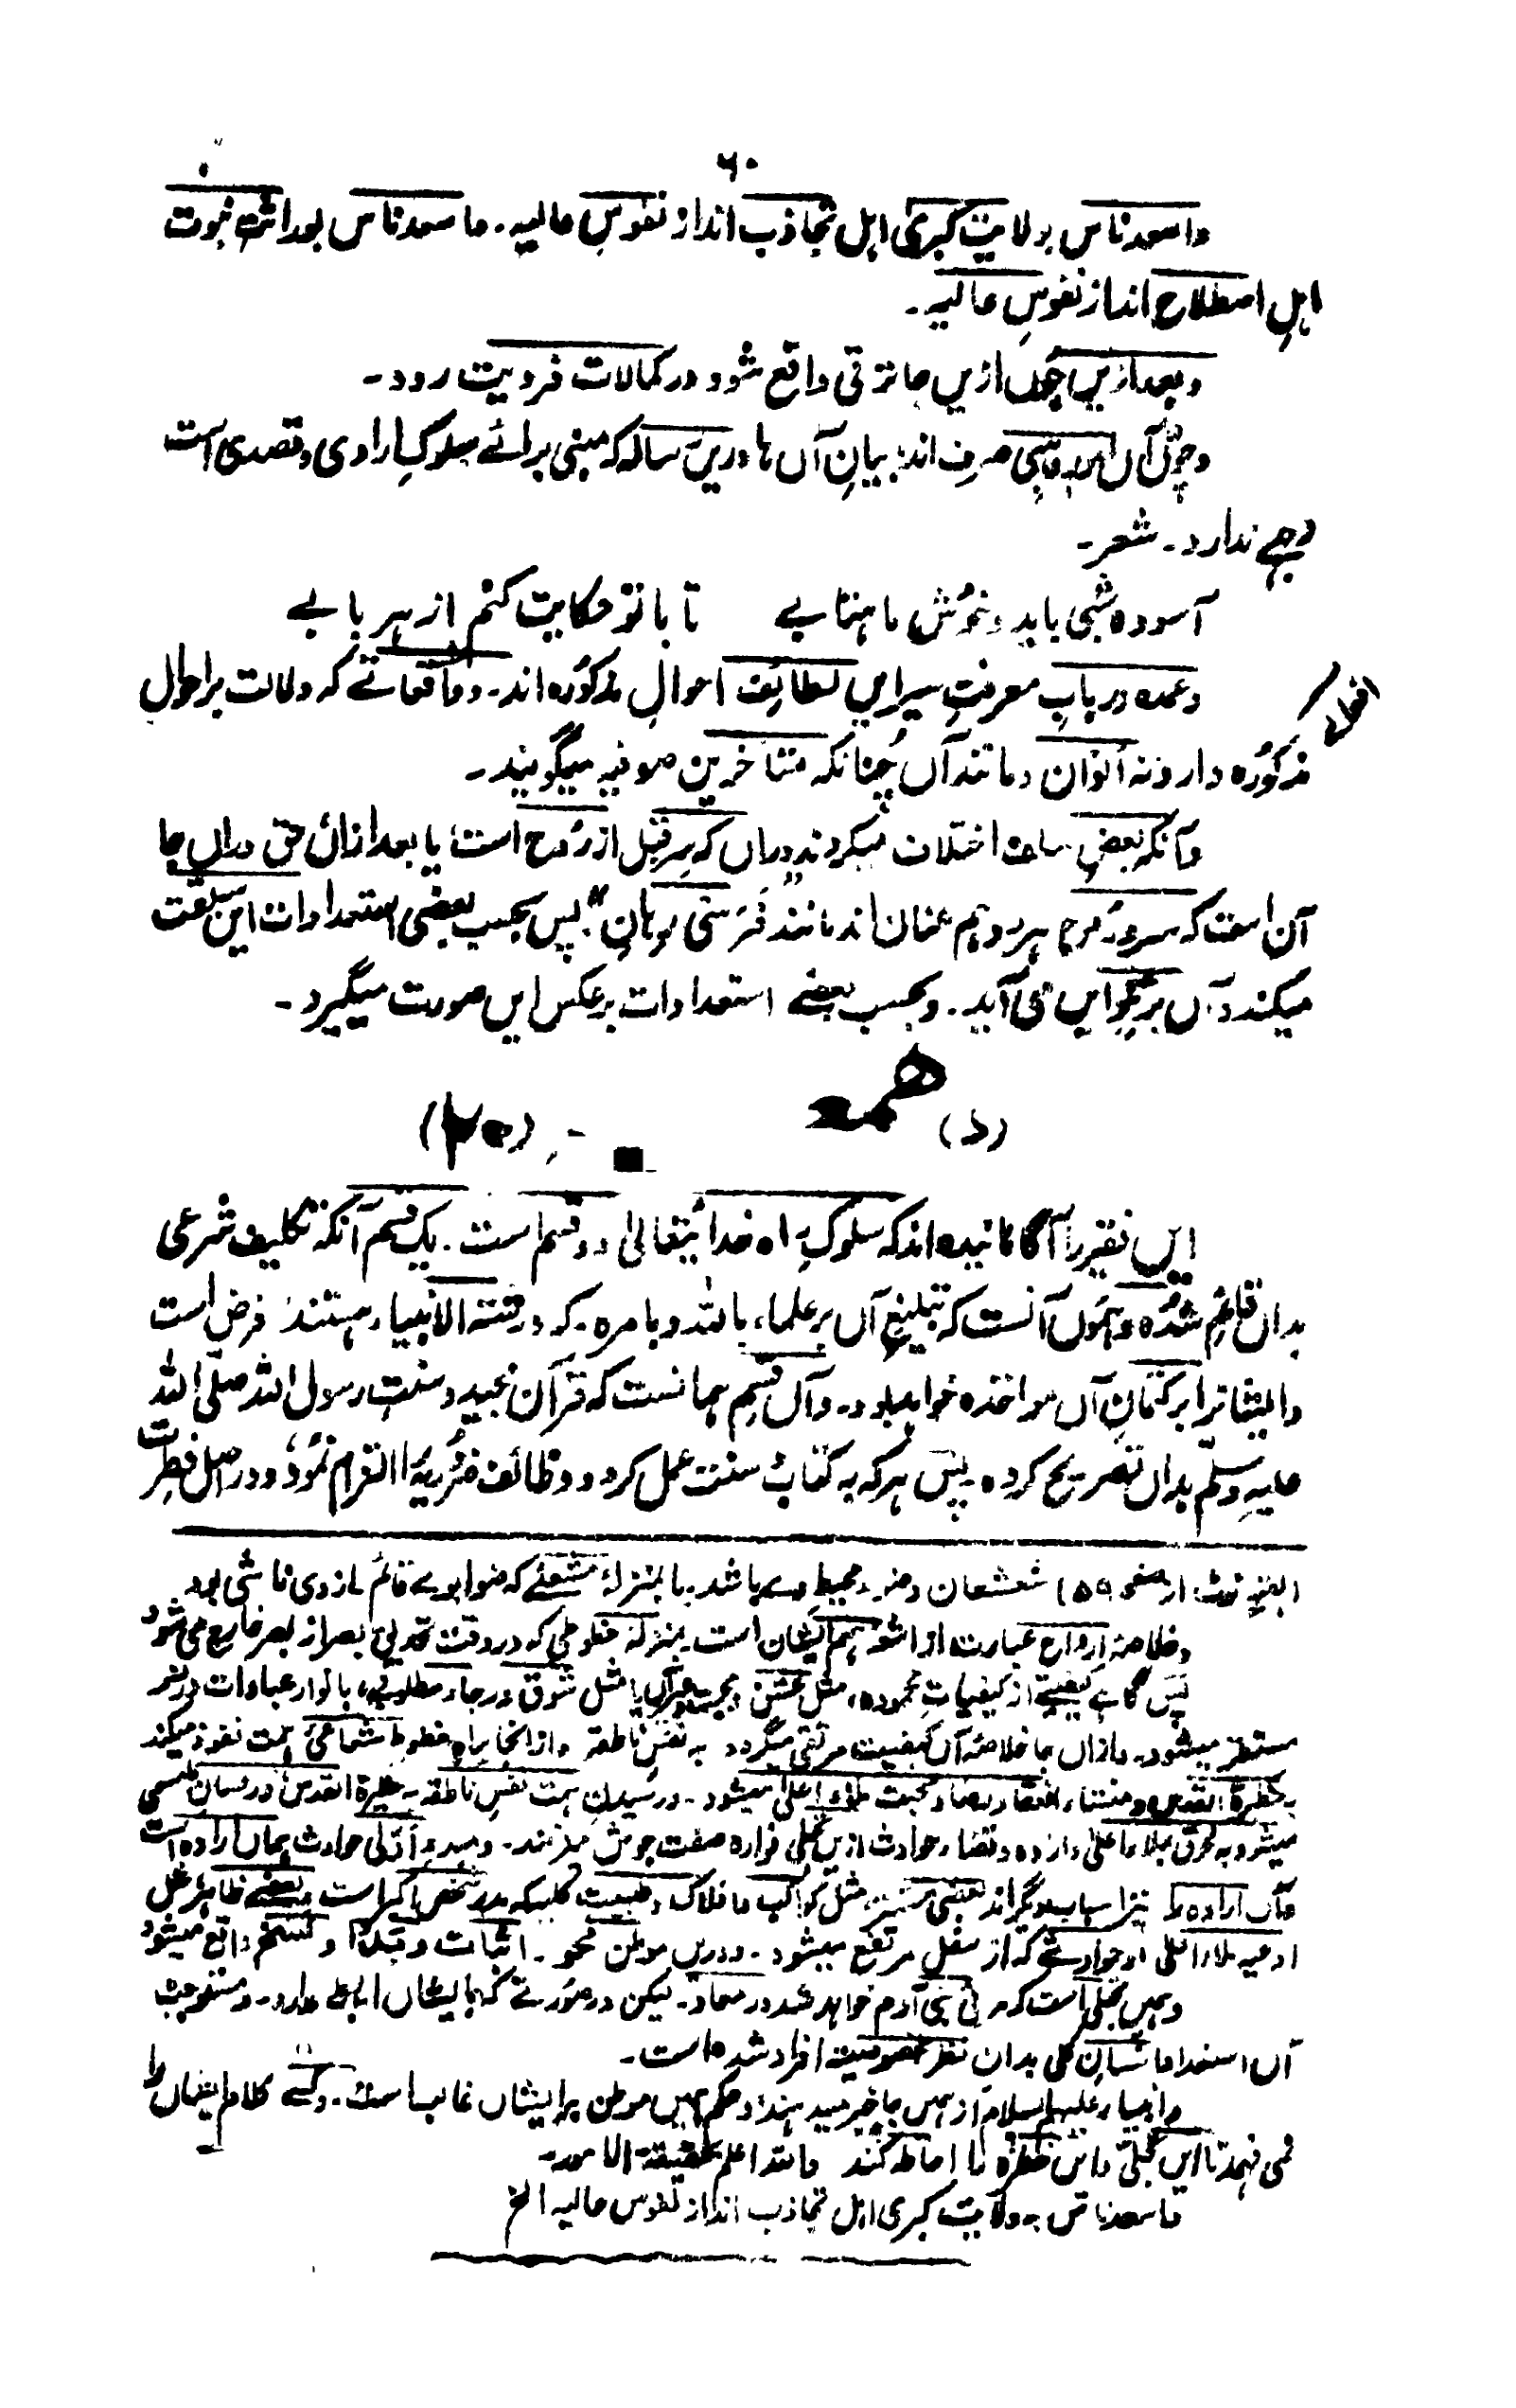 ۶۰
واسعد ناس بولایت کبریٰ اہل تجاذب اند از نفوسِ عالیہ۔ واسعد ناس بوراثت نبوت
اہلِ اصطلاح اند از نفوسِ عالیہ۔
وبعد ازیں چوں ازیں جا ترقی واقع شود در کمالات فردیت رود۔
وچوں آں امور وہبی صرف اند، بیانِ آں ہا دریں رسالہ کہ مبنی برائے سلوکِ ارادی و قصدی است
وجہے ندارد۔ شعر۔
آسودہ شبی باید و خوش ماہتابے تا با تو حکایت کنم از ہر بابے
وعمدہ در بابِ معرفتِ سیر ایں لطائف احوالِ مذکورہ اند۔ و واقعاتے کہ دلالت بر احوال
مذکورہ دارد نہ الوان و مانند آں چنانکہ متأخرین صوفیہ میگویند۔
وآنکہ بعضِ اختلاف میکردند دراں کہ سر قبل از روح است یا بعد ازاں حق دراں جا
آن است کہ سر و روح ہر دو ہم عنان اند مانند فَرَسَیْ رِہان" پس بحسب بعضی استعدادات این سبقت
میکند و آں برنگو ایں می آید۔ وبحسب بعضے استعدادات برعکس ایں صورت میگیرد۔
این فقیر را آگاہانیدہ اند کہ سلوکِ راہ خدائیتعالیٰ دو قسم است۔ یک قسم آنکہ تکلیف شرعی
بداں قائم شدہ و ہموں آنست کہ تبلیغِ آں بر علماء باللہ و بامرہ۔ کہ ورثۃ الانبیاء ہستند فرض است
و ایشانرا بر کتمانِ آں مواخذہ خواہد بود۔ و آں قسم ہمانست کہ قرآن مجید و سنتِ رسول اللہ صلی اللہ
علیہ وسلم بداں تصریح کردہ۔ پس ہر کہ بہ کتاب و سنت عمل کرد و وظائف ضروریہ را التزام نمود، و در اصل فطرت
(بقیہ نوٹ از صفحہ ۵۹) شعشعان و ضوء محیط وے باشد۔ یا بمنزلہ شعلئے کہ ضوا بوے قائم از وی ناشی بود
وخلاصہ ارواح عبارت از اشعہ ہم ایشان است۔ بمنزلہ خطوطی کہ در وقت تحدیق بصر از بصر خارج می شود
پس گاہے کیفیتے از کیفیاتِ محمودہ، مثل عشق و محبت یا مثل شوق و رجاء مطلوب، یا انوار عبادات در نفس
مستطر میشود۔ وازاں جا خلاصہ آں کیفیت مرتقی میگردد بہ نفسِ ناطقہ و از انجا براہِ خطوط شعاعیٔ ہمت نفوذ میکند
بہ حظیرۃ القدس و منشاء اعتقاد رضا و محبت ملاء اعلیٰ میشود۔ و رسیدنِ ہمت نفسِ ناطقہ بہ حظیرۃ القدس در لسان
میشود بہ ملاء اعلیٰ و ازدہ و قضاء حوادث ازیں تجلی فوارہ صفت جوش میزنند۔ و مبدءِ اوّلی حوادث ہماں ارادہ است
وآں ارادہ را نیز اسباب دیگر اند بعضی مستمر، مثل کواکب و افلاک و طبیعت کلیہ کہ مدبر شخص اکبر است و بعضے ظاہر مثل
ادعیہ ملاء اعلیٰ و حوادثے کہ از سفل مرتفع میشود۔ و دریں موطن محو۔ اثبات و تبدّل و نسخ واقع میشود
و ہمیں تجلی است کہ مرئی بنی آدم خواہد شد در معاد۔ لیکن در صورتے کہ با ایشاں رابطہ دارد۔ و مستوجب
آں استعداد انسانِ کلی بداں نظر خصوصیتِ افراد شدہ است۔
و انبیاء علیہم السلام از ہمیں جا خبر میدہند و حکم ہمیں موطن بر ایشاں غالب است۔ و کسے کلام ایشاں را
نمی فہمد تا ایں تجلی و ایں حظیرہ را احاطہ نکند واللہ اعلم بحقیقۃ الامور۔
واسعد ناس بہ ولایت کبریٰ اہل تجاذب اند از نفوس عالیہ الخ